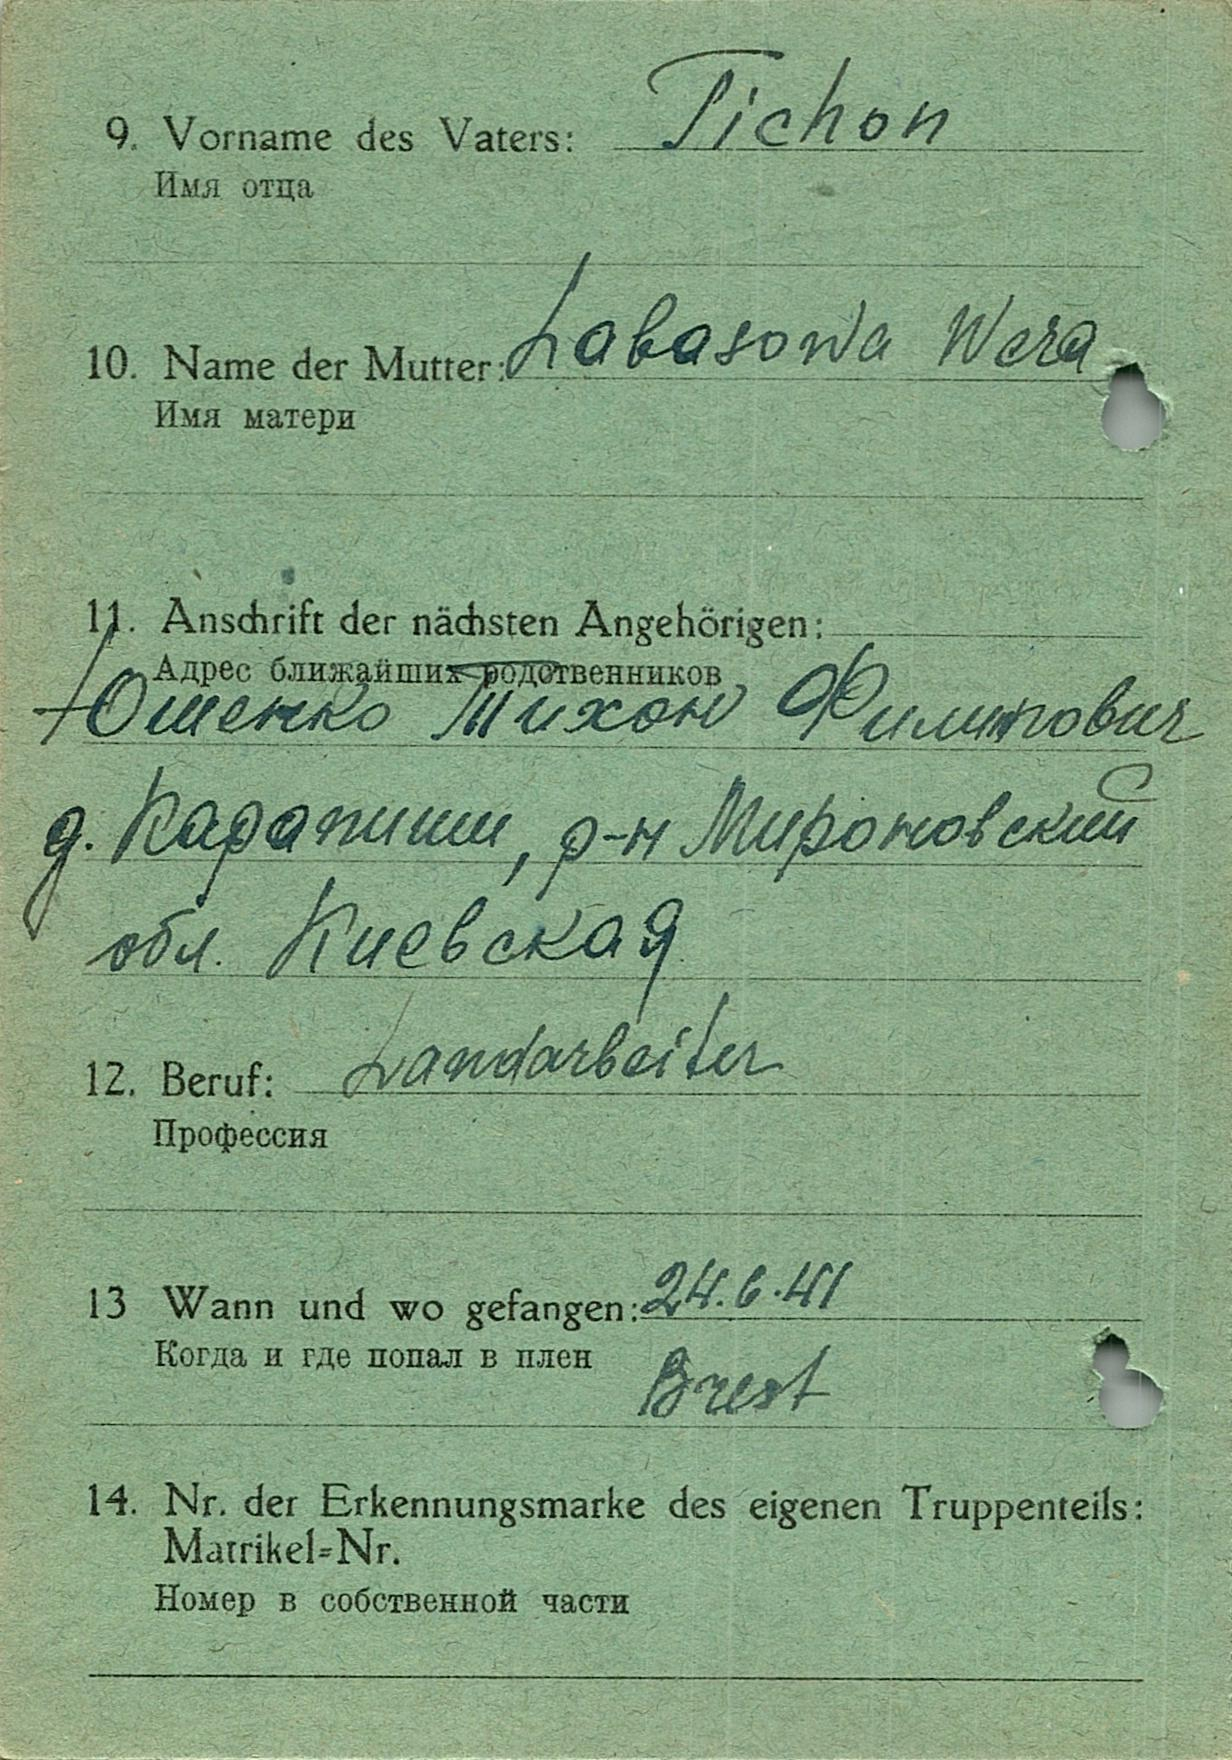 9. Vorname des Vaters: Tichon
Имя отца
10. Name der Mutter: Labasowa Wera
Имя матери
11. Anschrift der nächsten Angehörigen:
Адрес ближайших родственников
Юшенко Тихон Филипович
д. Карапиши, р-н Мироновский
обл. Киевская
12. Beruf: Landarbeiter
Профессия
13 Wann und wo gefangen: 24.6.41
Когда и где попал в плен
Brest
14. Nr. der Erkennungsmarke des eigenen Truppenteils:
Matrikel=Nr.
Номер в собственной части